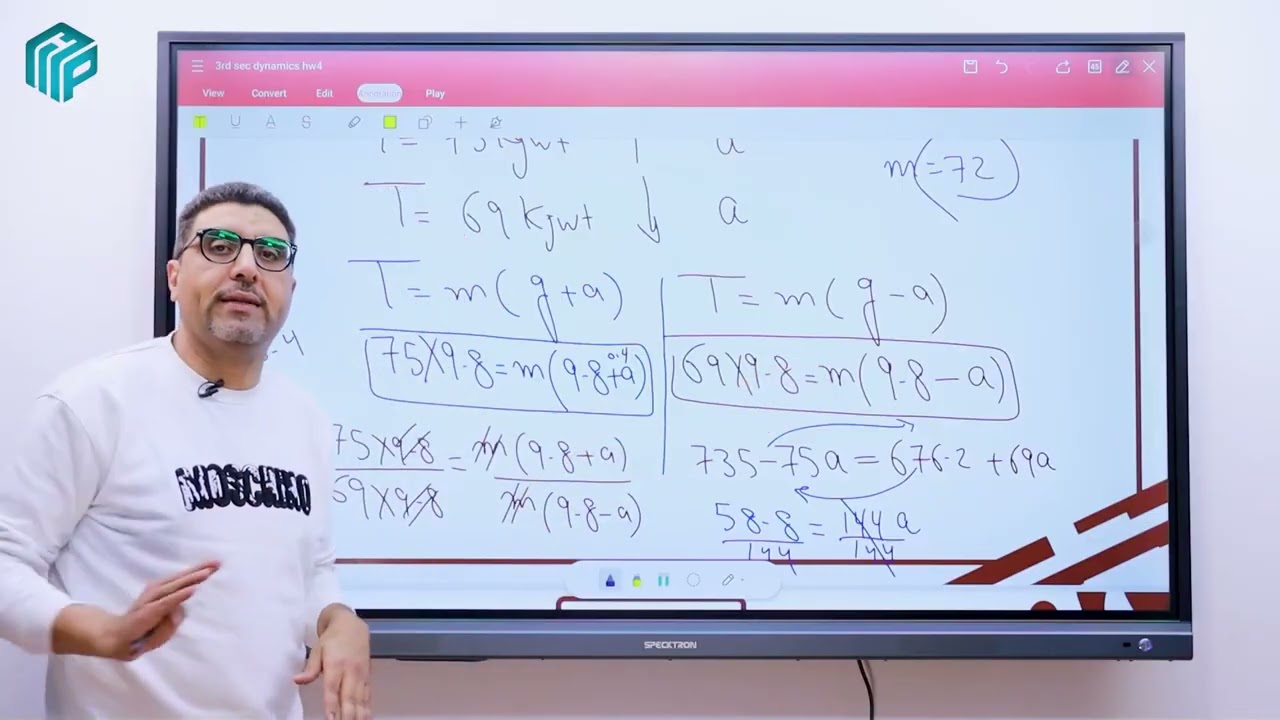 3rd sec dynamics hw4
View Convert Edit Annotation Play
T = 69 Kgwt ↓ a
m = 72
T = m(g + a)
T = m(g - a)
75X9.8 = m(9.8+a)
0.4
69X9.8 = m(9.8 - a)
75X9.8 / 69X9.8 = m(9.8+a) / m(9.8-a)
735 - 75a = 676.2 + 69a
58.8 / 144 = 144 a / 144
MOSCHINO
SPECKTRON